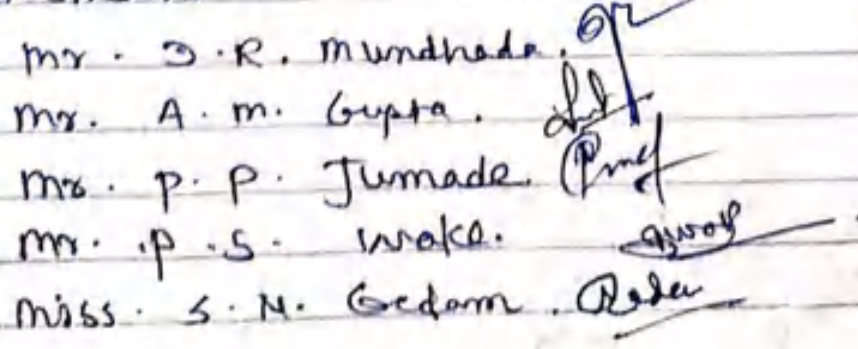 Mr. D.R. Mundhada.
Mr. A.M. Gupta.
Mr. P.P. Jumade.
Mr. P.S. Wake.
Miss. S.N. Gedam.